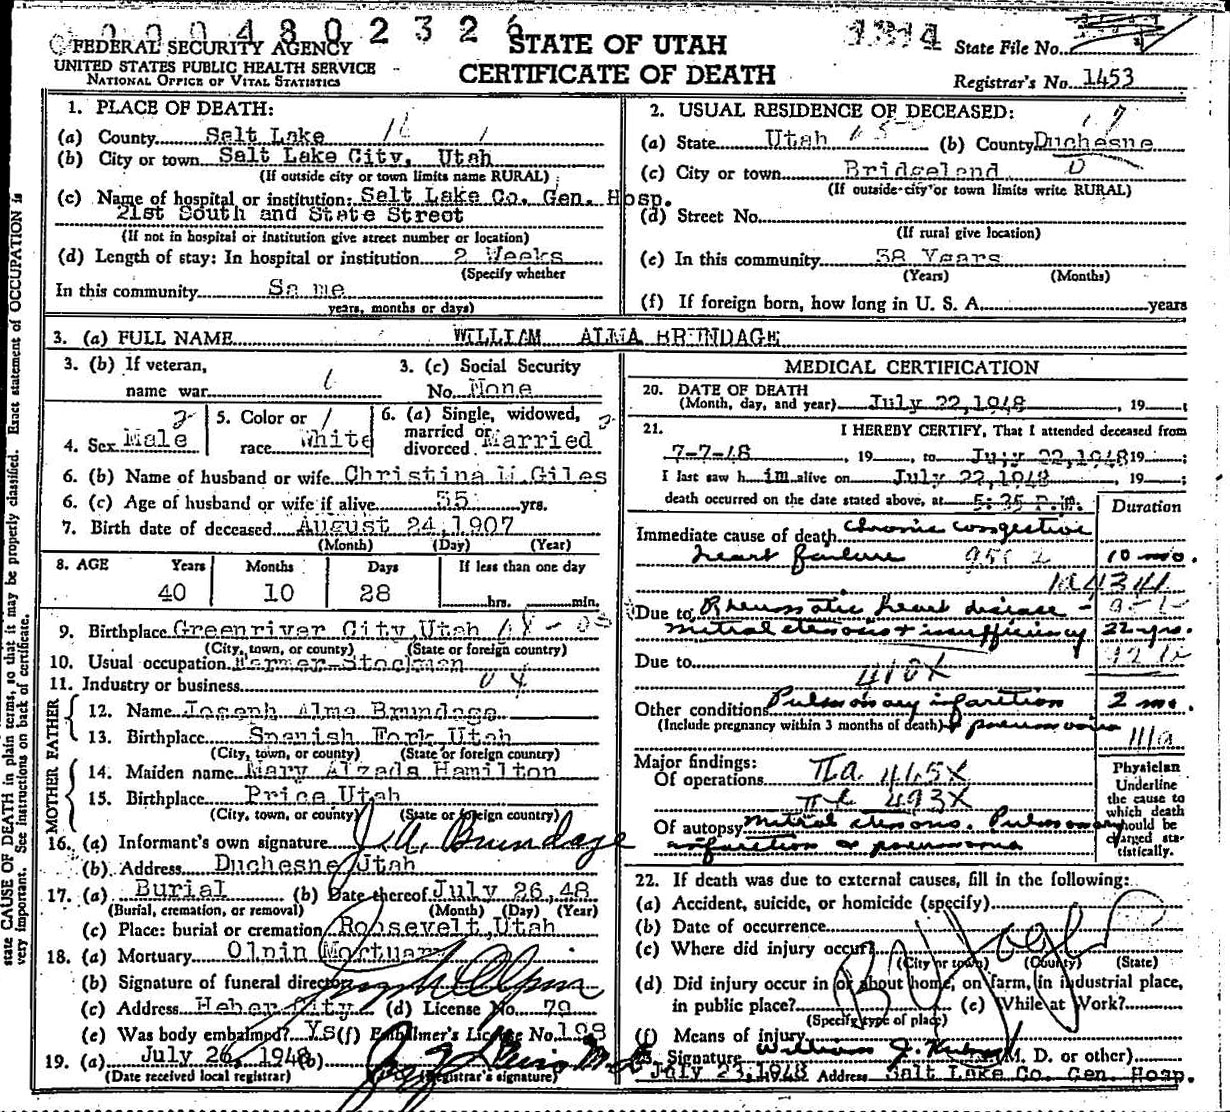 000480232 6
1314
STATE OF UTAH
CERTIFICATE OF DEATH
FEDERAL SECURITY AGENCY
UNITED STATES PUBLIC HEALTH SERVICE
NATIONAL OFFICE OF VITAL STATISTICS
State File No.
Registrar's No. 1453
state CAUSE OF DEATH in plain terms, so that it may be properly classified. Exact statement of OCCUPATION is
very important. See instructions on back of certificate.
1. PLACE OF DEATH:
(a) County Salt Lake
(b) City or town Salt Lake City, Utah
(If outside city or town limits name RURAL)
(c) Name of hospital or institution: Salt Lake Co. Gen. Hosp.
21st South and State Street
(If not in hospital or institution give street number or location)
(d) Length of stay: In hospital or institution 2 Weeks
(Specify whether
In this community Same
years, months or days)
2. USUAL RESIDENCE OF DECEASED:
(a) State Utah (b) County Duchesne
(c) City or town Bridgeland
(If outside city or town limits write RURAL)
(d) Street No.
(If rural give location)
(e) In this community 38 Years
(Years) (Months)
(f) If foreign born, how long in U. S. A. years
3. (a) FULL NAME WILLIAM ALMA BRUNDAGE
3. (b) If veteran,
name war
3. (c) Social Security
No. None
4. Sex Male
5. Color or
race White
6. (a) Single, widowed,
married or
divorced Married
6. (b) Name of husband or wife Christina M.Giles
6. (c) Age of husband or wife if alive 35 yrs.
7. Birth date of deceased August 24,1907
(Month) (Day) (Year)
8. AGE Years Months Days If less than one day
40 10 28 hrs. min.
9. Birthplace Greenriver City,Utah
(City, town, or county) (State or foreign country)
10. Usual occupation Farmer-Stockman
11. Industry or business
FATHER
12. Name Joseph Alma Brundage
13. Birthplace Spanish Fork,Utah
(City, town, or county) (State or foreign country)
MOTHER
14. Maiden name Mary Alzada Hamilton
15. Birthplace Price,Utah
(City, town, or county) (State or foreign country)
16. (a) Informant's own signature J. A. Brundage
(b) Address Duchesne, Utah
17. (a) Burial (b) Date thereof July 26,48
(Burial, cremation, or removal) (Month) (Day) (Year)
(c) Place: burial or cremation Roosevelt,Utah
18. (a) Mortuary Olpin Mortuary
(b) Signature of funeral director
(c) Address Heber City (d) License No. 79
(e) Was body embalmed? Ys (f) Embalmer's License No. 198
19. (a) July 26, 1948 (b)
(Date received local registrar) (Registrar's signature)
MEDICAL CERTIFICATION
20. DATE OF DEATH
(Month, day, and year) July 22,1948, 19
21. I HEREBY CERTIFY, That I attended deceased from
7-7-48, 19, to July 22,1948 19;
I last saw him alive on July 22,1948, 19;
death occurred on the date stated above, at 5:35 P.M.
Duration
Immediate cause of death chronic congestive
heart failure 10 mo.
Due to Rheumatic heart disease -
mitral stenosis + insufficiency 22 yrs.
Due to
410X
Other conditions Pulmonary infarction 2 mo.
(Include pregnancy within 3 months of death) + pneumonia
111a
Major findings:
Of operations IIa 465X
IIb 493X
Of autopsy mitral stenosis. Pulmonary
infarction & pneumonia
Physician
Underline
the cause to
which death
should be
charged sta-
tistically.
22. If death was due to external causes, fill in the following:
(a) Accident, suicide, or homicide (specify)
(b) Date of occurrence
(c) Where did injury occur?
(City or town) (County) (State)
(d) Did injury occur in or about home, on farm, in industrial place,
in public place? (e) While at Work?
(Specify type of place)
(f) Means of injury
23. Signature William J. (M. D. or other)
July 23,1948 Address Salt Lake Co. Gen. Hosp.